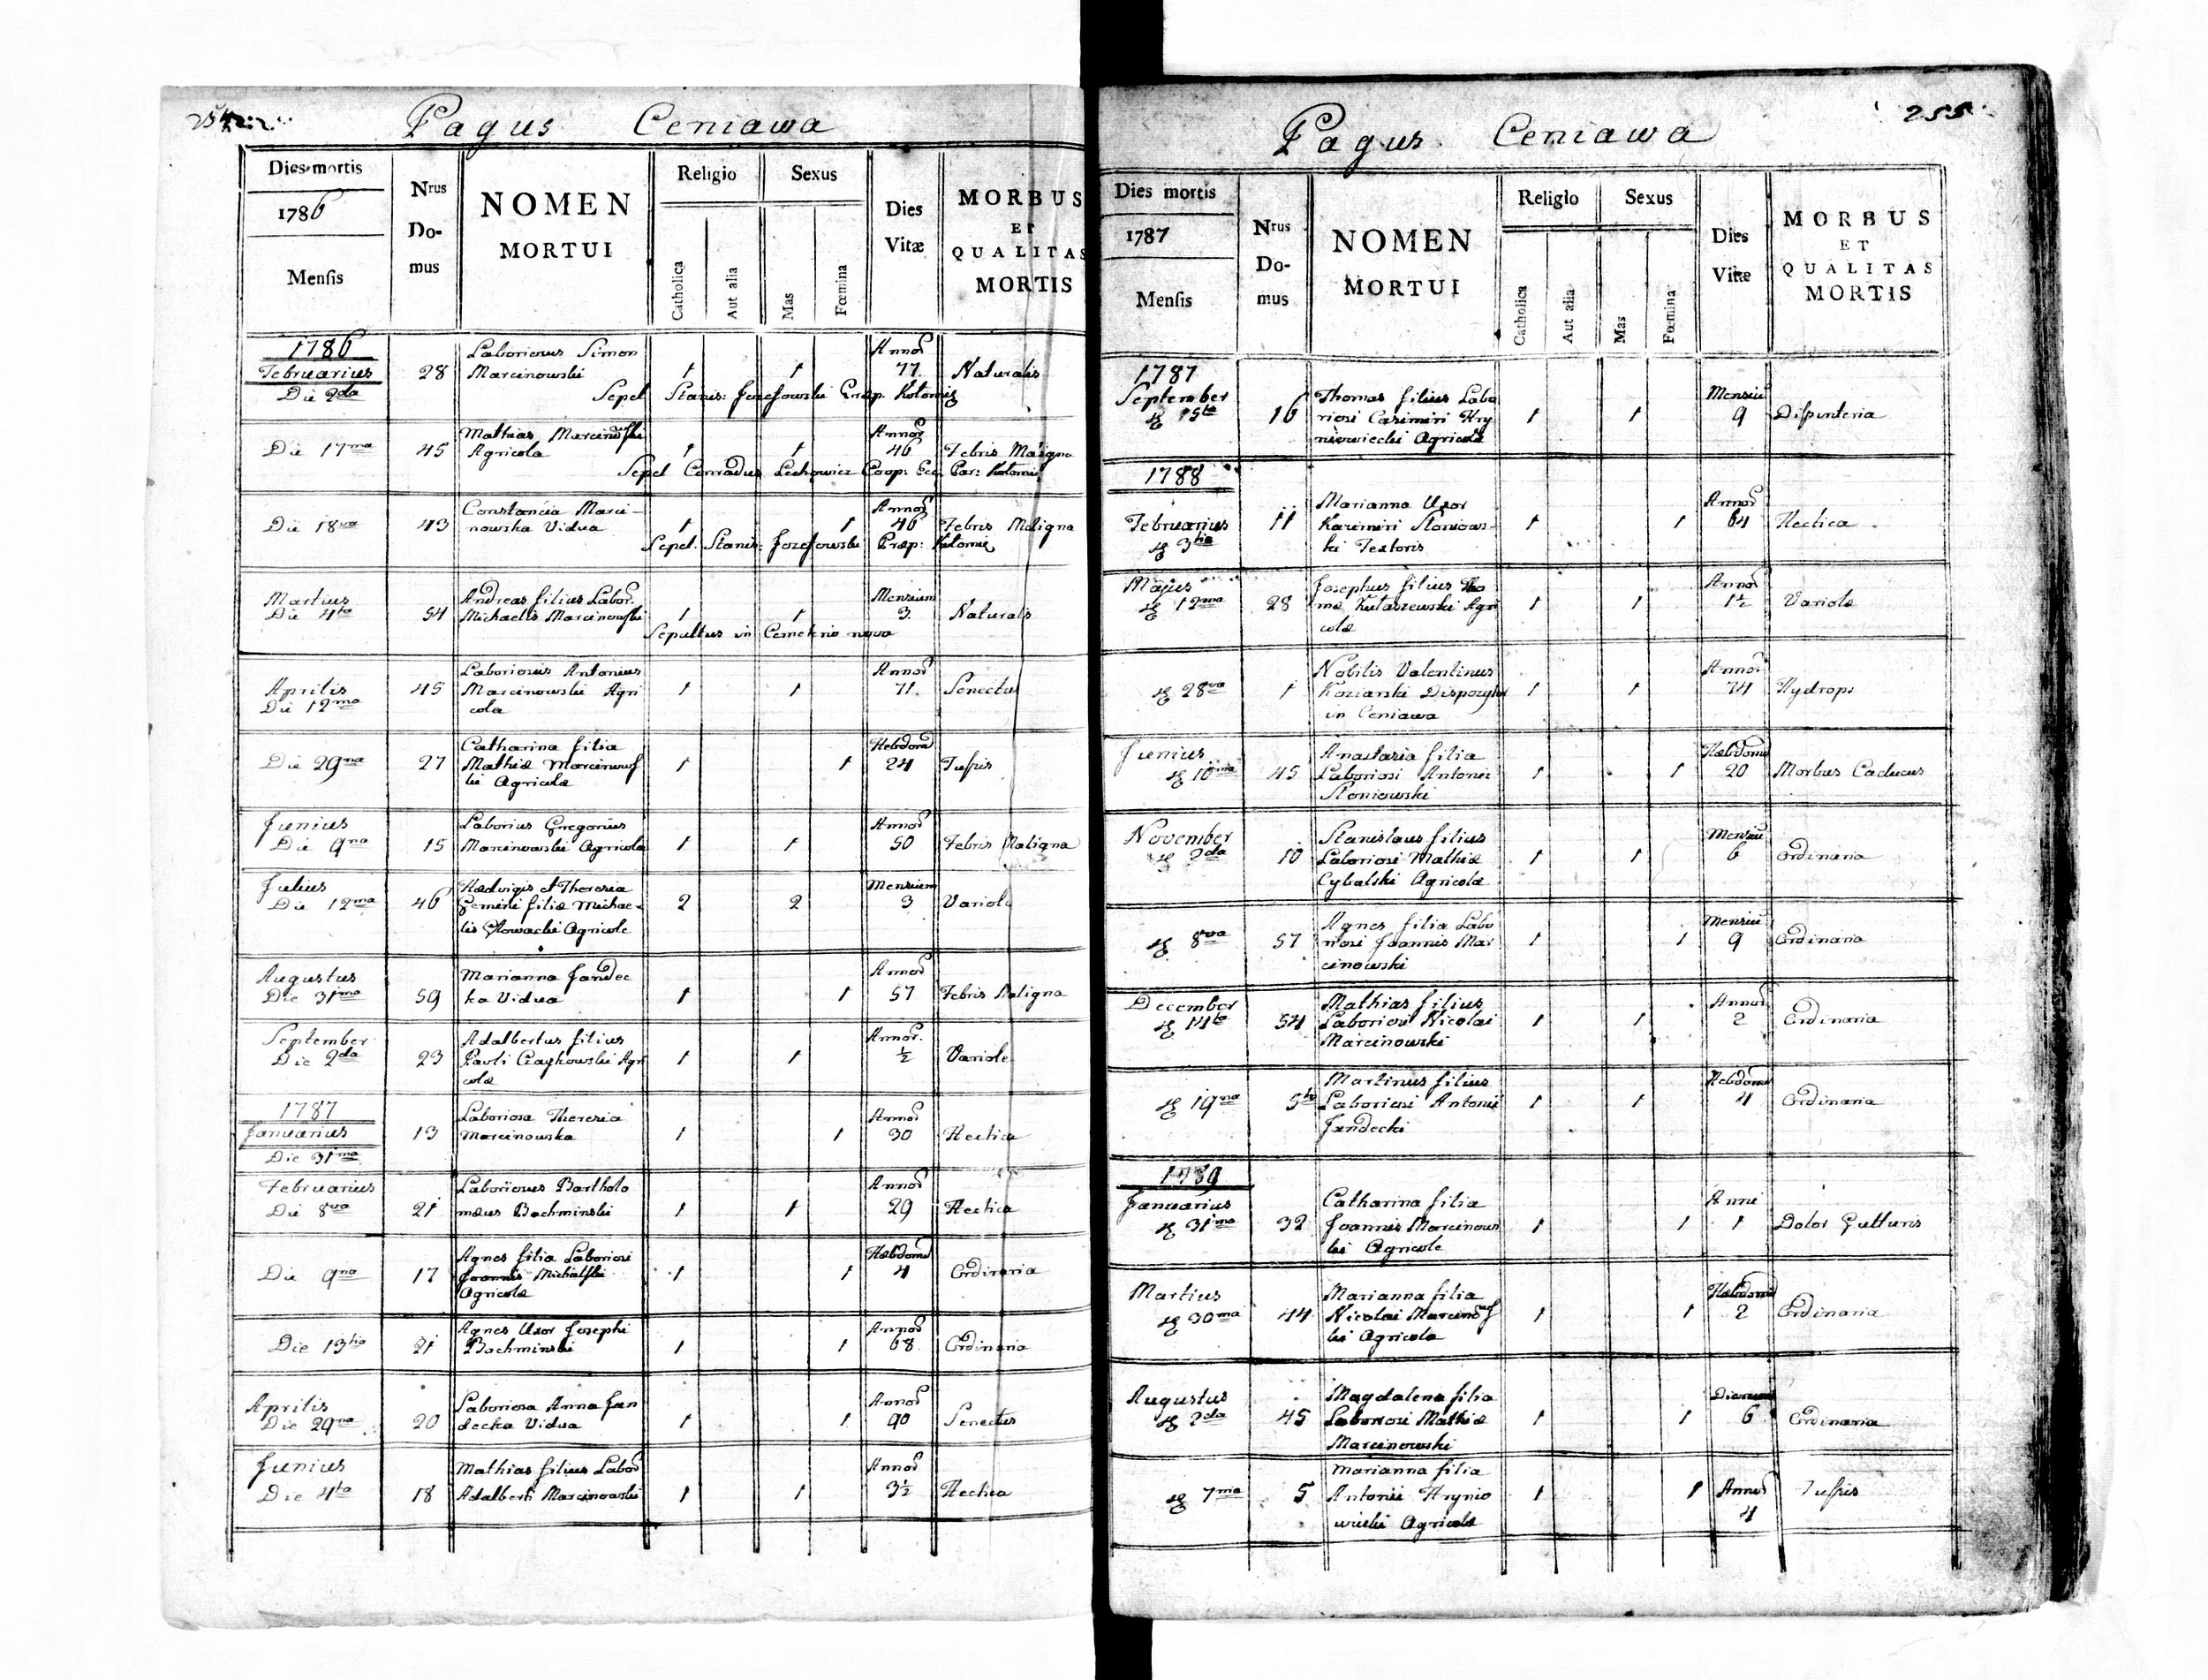 Pagus Ceniawa
Dies mortis
1786
Mensis
Nrus Do-mus
NOMEN MORTUI
Religio
Catholica
Aut alia
Sexus
Mas
Fœmina
Dies Vitæ
MORBUS ET QUALITAS MORTIS
1786
Februarius
Die 2da 28 Laboriosus Simon Marcinowski 1 1 Annoꝝ 77. Naturalis
Sepel Stanis: Jozefowski Præp. Kołomię
Die 17ma 45 Mathias Marcinowski Agricola 1 1 Annoꝝ 46 Febris Maligna
Sepel Conradus Lechowicz Coop: Ecc. Par: Kołomi
Die 18va 43 Constancia Marci-nowska Vidua 1 1 Annoꝝ 46 Febris Maligna
Sepel. Stanis: Jozefowski Præp: Kołomię
Martius
Die 4ta 54 Andreas filius Labor. Michaelis Marcinowski 1 1 Mensium 3. Naturalis
Sepultus in Cemeterio novo
Aprilis
Die 12ma 45 Laboriosus Antonius Marcinowski Agri cola 1 1 Annoꝝ 71. Senectus
Die 29na 27 Catharina filia Mathiæ Marcinows ki Agricolæ 1 1 Hebdom 24 Tussis
Junius
Die 9na 15 Laborius Gregorius Marcinowski Agricola 1 1 Annoꝝ 50 Febris Maligna
Julius
Die 12ma 46 Hedvigis et Theresia Gemini filiæ Michae-lis Głowacki Agricolæ 2 2 Mensium 3 Variolæ
Augustus
Die 31ma 59 Marianna Jandec ka Vidua 1 1 Annoꝝ 57 Febris Maligna
September
Die 2da 23 Adalbertus filius Pavli Czaykowski Agri colæ 1 1 Annor. ½ Variole
1787
Januarius
Die 31ma 13 Laboriosa Theresia Marcinowska 1 1 Annoꝝ 30 Hectica
Februarius
Die 8va 21 Laboriosus Bartholo mæus Bochminski 1 1 Annoꝝ 29 Hectica
Die 9na 17 Agnes filia Laboriosi Joannis Michalski Agricolæ 1 1 Hebdom 4 Ordinaria
Die 13tia 21 Agnes Uxor Josephi Bochminski 1 1 Annoꝝ 68 Ordinaria
Aprilis
Die 29na 20 Laboriosa Anna Jan decka Vidua 1 1 Annoꝝ 90 Senectus
Junius
Die 4ta 18 Mathias filius Laboꝝ Adalberti Marcinowski 1 1 Annoꝝ 3½ Hectica
255
Pagus Ceniawa
Dies mortis
1787
Mensis
Nrus Do-mus
NOMEN MORTUI
Religio
Catholica
Aut alia
Sexus
Mas
Fœmina
Dies Vitæ
MORBUS ET QUALITAS MORTIS
1787
September
15ta 16 Thomas filius Labo riosi Casimiri Hry niewiecki Agricolæ 1 1 Mensiu 9 Dispunteria
1788
Februarius
3tia 11 Marianna Uxor Kazimiri Słoniows-ki Textoris 1 1 Annoꝝ 64 Hectica
Majus
12ma 28 Josephus filius Tho mæ Kułaszewski Agri colæ 1 1 Annoꝝ 1½ Variolæ
28va 1 Nobilis Valentinus Koziarski Dispozytor in Ceniawa 1 1 Annoꝝ 74 Hydrops
Junius
10ma 45 Anastasia filia Laboriosi Antonii Słoniowski 1 1 Hebdom 20 Morbus Caducus
November
2da 10 Stanislaus filius Laboriosi Mathiæ Cybalski Agricolæ 1 1 Mensiu 6 Ordinaria
8va 57 Agnes filia Labo riosi Joannis Mar cinowski 1 1 Mensiu 9 Ordinaria
December
14ta 54 Mathias filius Laboriosi Nicolai Marcinowski 1 1 Annoꝝ 2 Ordinaria
19na Martinus filius Laboriosi Antonii Jandecki 1 1 Hebdom 4 Ordinaria
1789
Januarius
31ma 32 Catharina filia Joannis Marcinows ki Agricole 1 1 Anni 1 Dolor Gutturis
Martius
30ma 44 Marianna filia Nicolai Marcinows ki Agricola 1 1 Hebdom 2 Ordinaria
Augustus
2da 45 Magdalena filia Laboriosi Mathiæ Marcinowski 1 1 Dierum 6 Ordinaria
7ma 5 Marianna filia Antonii Hrynie wiecki Agricolæ 1 1 Annoꝝ 4 Tussis